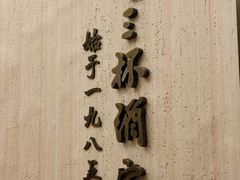 三杯酒家
始于一九八五